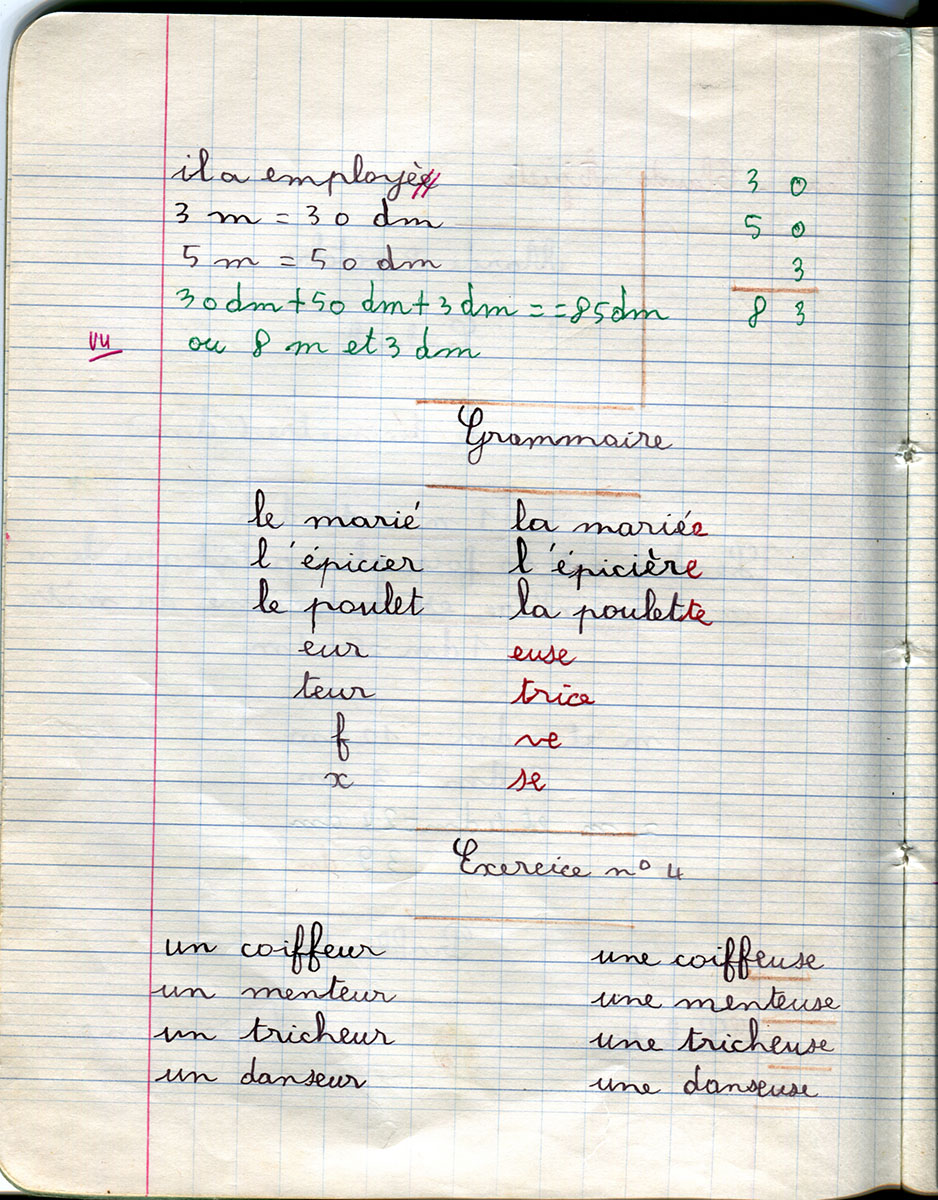 il a employé
3 m = 30 dm
5 m = 50 dm
30 dm + 50 dm + 3 dm = = 85 dm
ou 8 m et 3 dm
vu
30
50
3
83
Grammaire
le marié la mariée
l'épicier l'épicière
le poulet la poulette
eur euse
teur trice
f ve
x se
Exercice n° 4
un coiffeur une coiffeuse
un menteur une menteuse
un tricheur une tricheuse
un danseur une danseuse